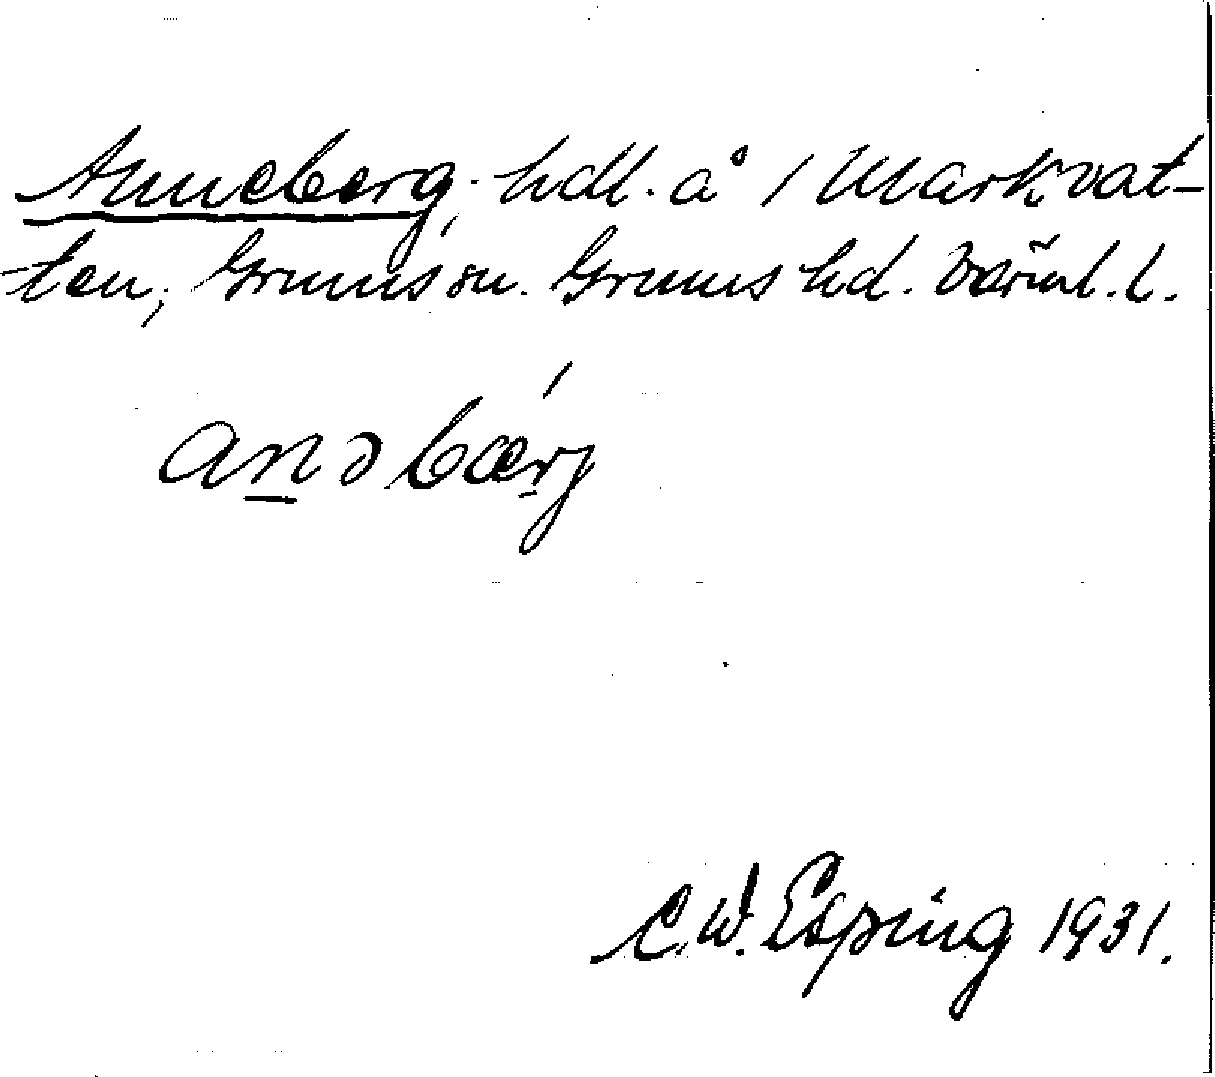 Anneberg, hdl. å 1 Markvat-
ten, Grums sn. Grums hd. Värml. l.
anəbærj
C. W. Esping 1931.